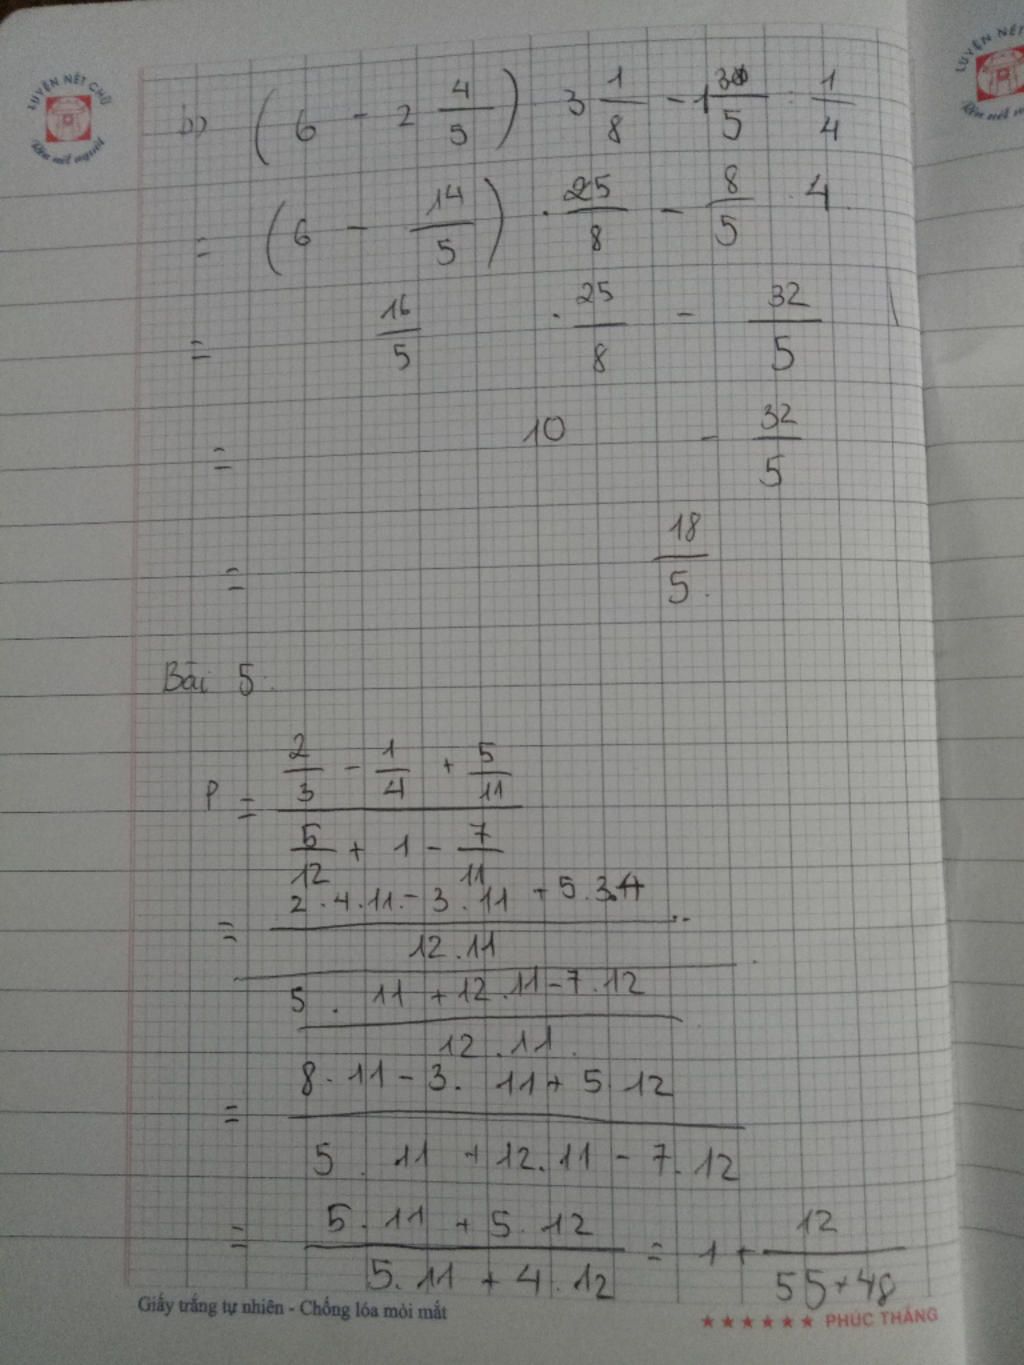 LUYỆN NÉT CHỮ
Rèn nết người
LUYỆN NÉT
Rèn nết
b) (6 - 2 4/5) 3 1/8 - 1 3/5 : 1/4
= (6 - 14/5) . 25/8 - 8/5 . 4
= 16/5 . 25/8 - 32/5
= 10 - 32/5
= 18/5.
Bài 5.
P = (2/3 - 1/4 + 5/11) / (5/12 + 1 - 7/11)
= ((2.4.11 - 3.11 + 5.3.4) / (12.11)) / ((5.11 + 12.11 - 7.12) / (12.11))
= (8.11 - 3.11 + 5.12) / (5.11 + 12.11 - 7.12)
= (5.11 + 5.12) / (5.11 + 4.12) = 1 + 12 / (55 + 48)
Giấy trắng tự nhiên - Chống lóa mỏi mắt
★★★★★★ PHÚC THẮNG